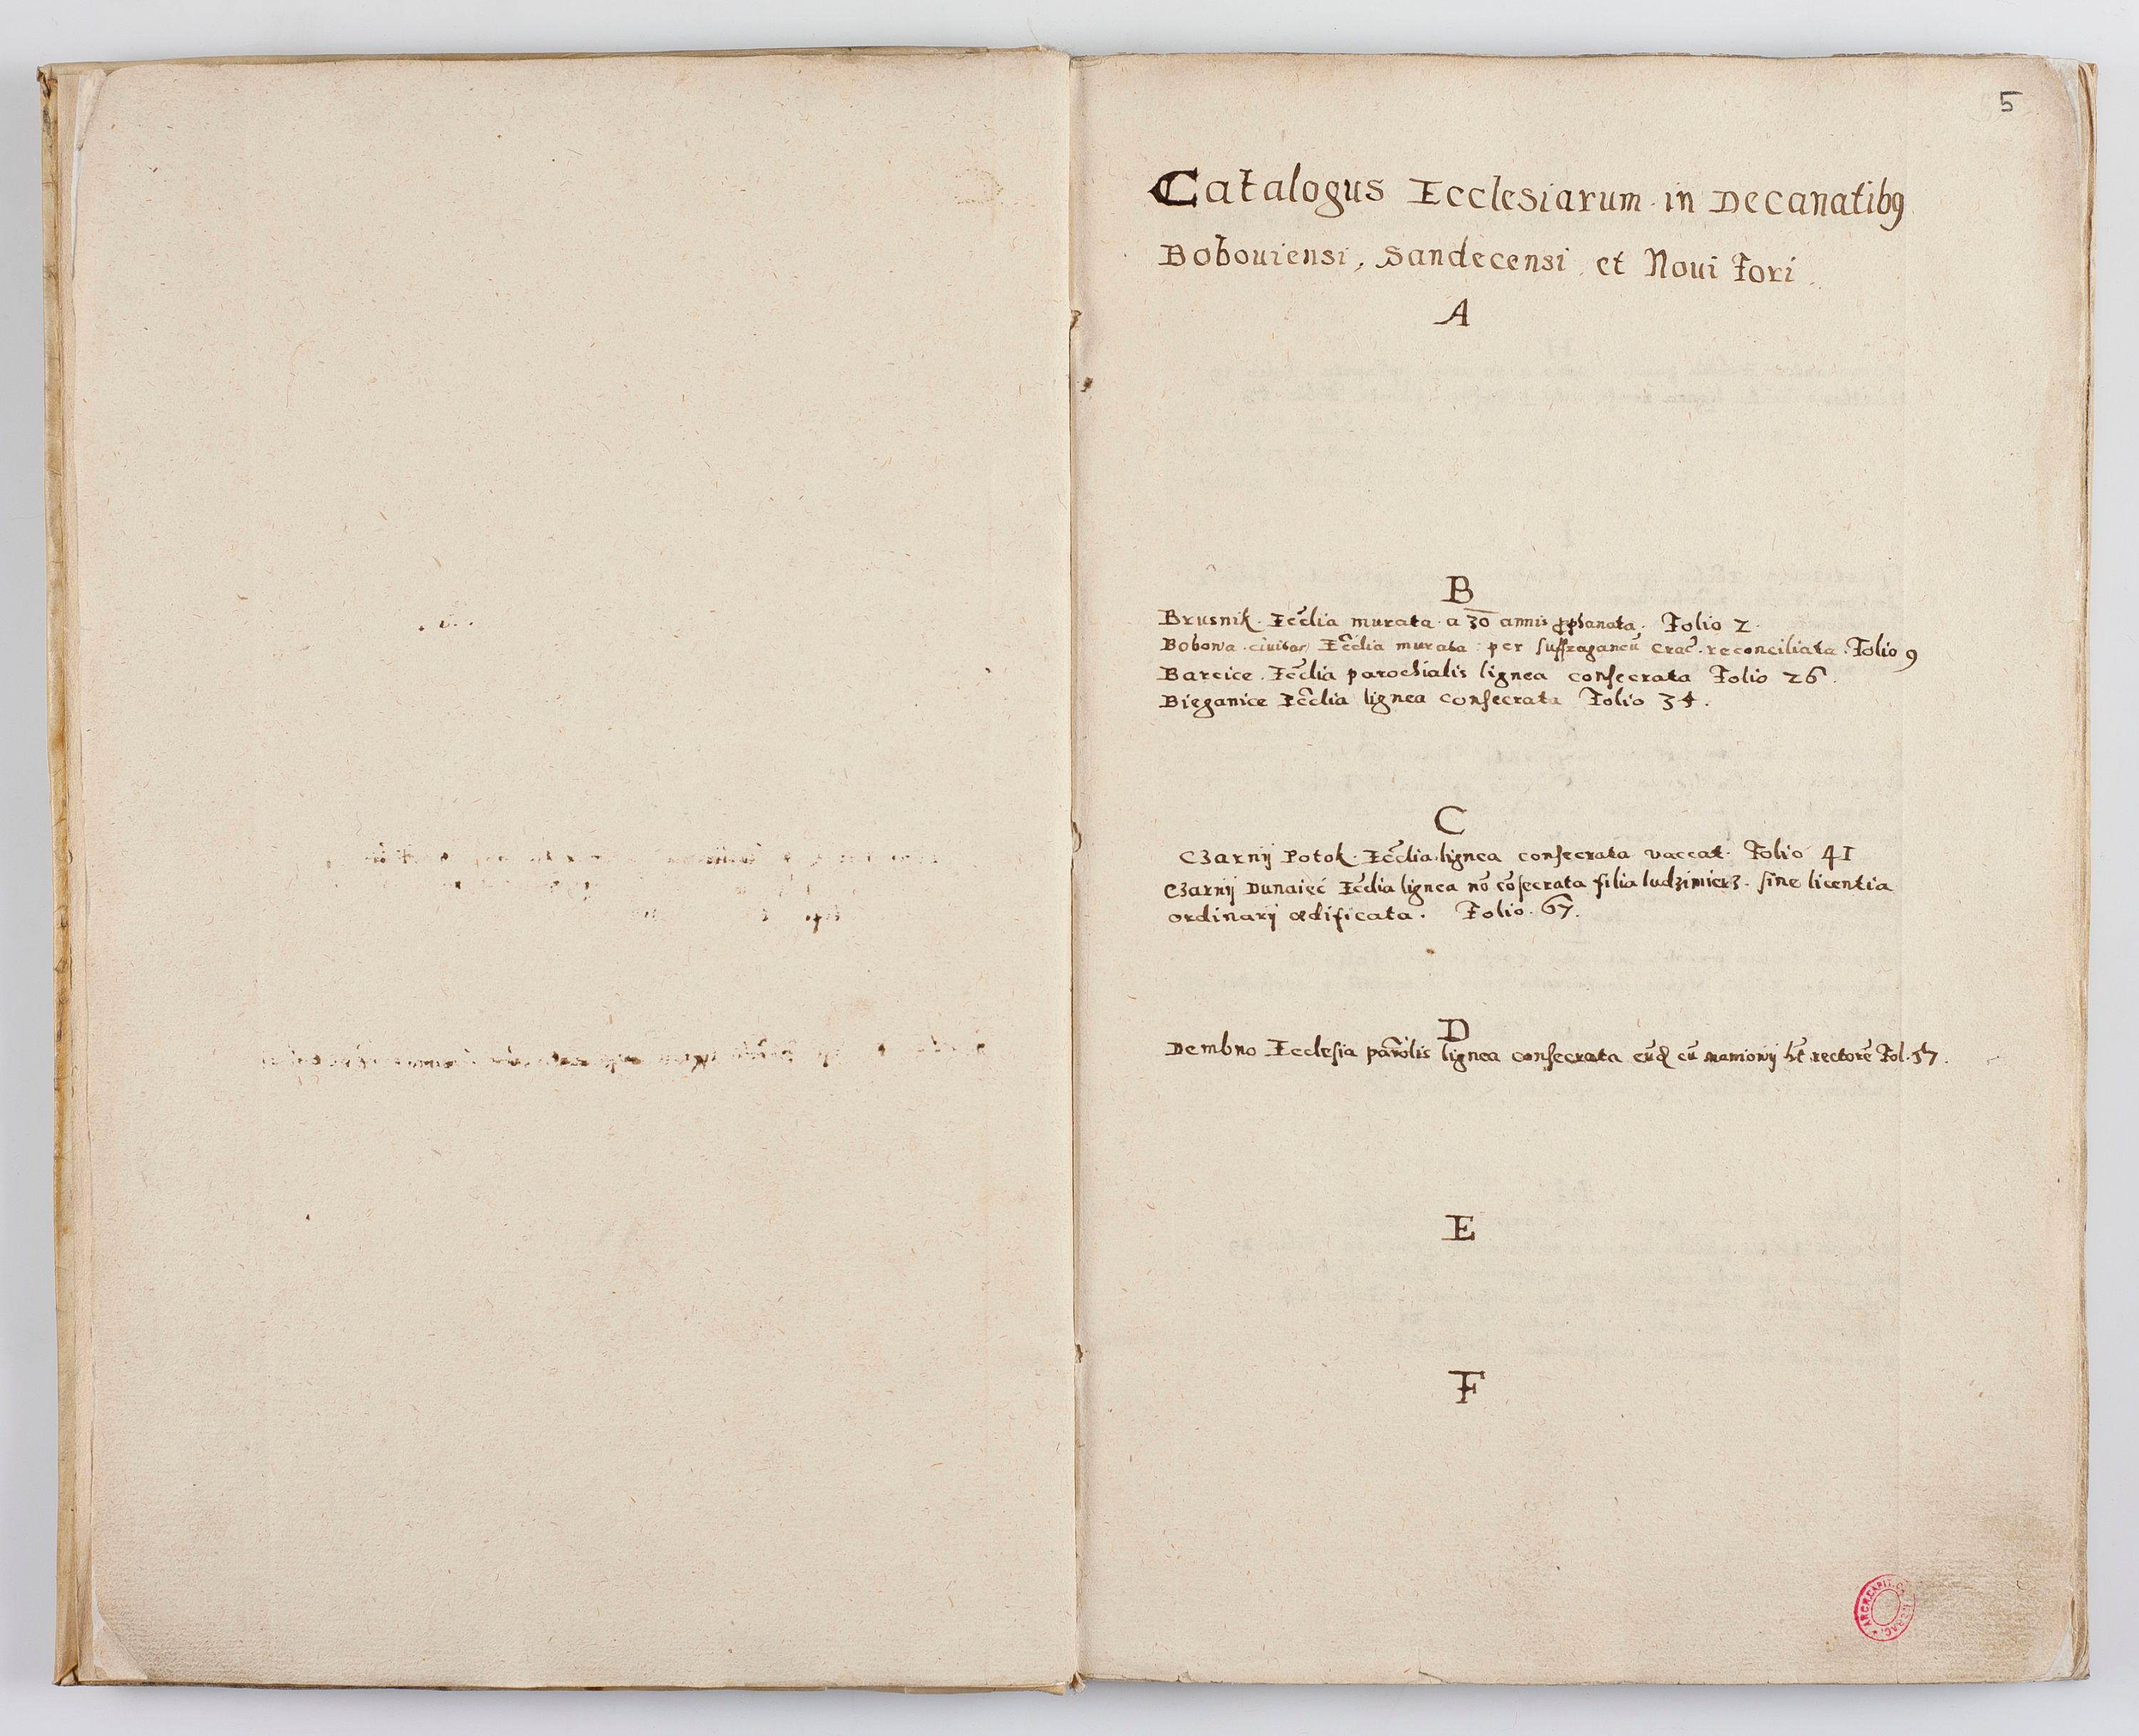 5
Catalogus Ecclesiarum in Decanatibꝯ
Bobouiensi, Sandecensi et Noui Fori
A
B
Brusnik. Eccl̃ia murata a 30 annis ꝓphanata. Folio 2.
Bobowa civitas Eccl̃ia murata per suffraganeũ Crac̃. reconciliata. Folio 9
Barcice. Eccl̃ia parochialis lignea consecrata Folio 26.
Bieganice Eccl̃ia lignea consecrata Folio 34.
C
Czarnÿ Potok. Eccl̃ia lignea consecrata vaccat. Folio 41
Czarnÿ Dunaieć Eccl̃ia lignea nõ cõsecrata filia ludzimierz. sine licentia
ordinarÿ ædificata. Folio. 67.
D
Dembno Ecclesia par̃olis lignea consecrata cũ maniowÿ hẽt rectorẽ Fol. 57.
E
F